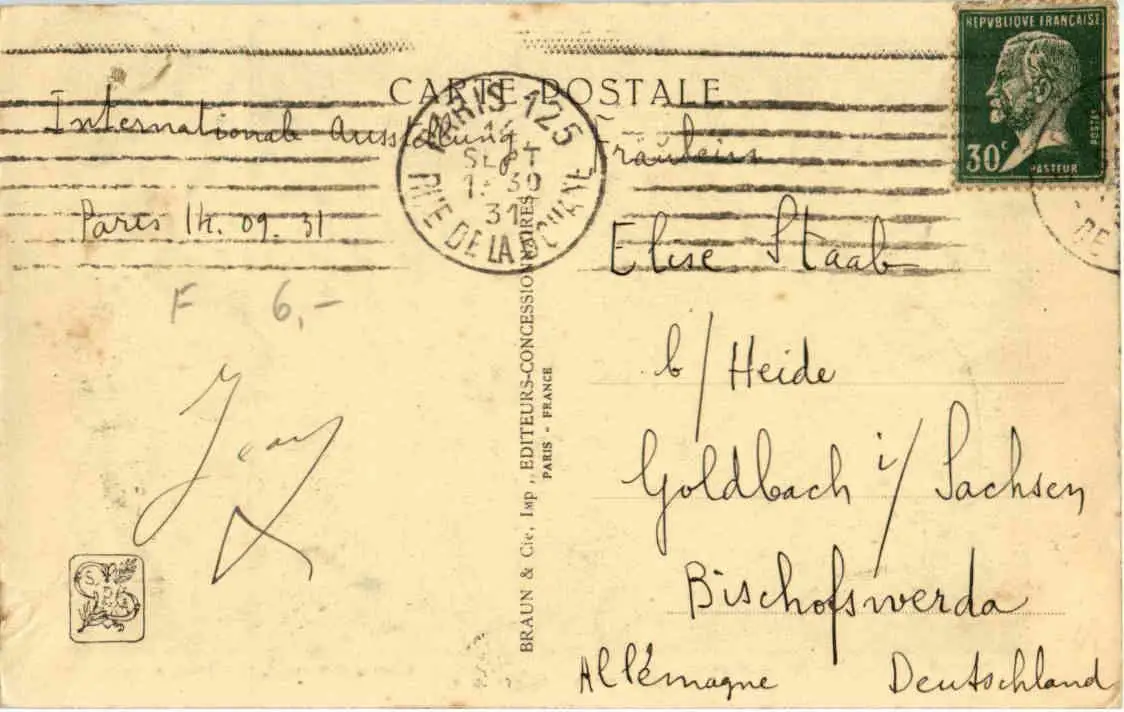 CARTE POSTALE
REPVBLIQVE FRANÇAISE
POSTES
30c
PASTEUR
PARIS 125
14
SEPT
30
31
RUE DE LA
Internationale Ausstellung
Paris 14. 09. 31
F 6,-
BRAUN & Cie, Imp, EDITEURS-CONCESSIONNAIRES
PARIS - FRANCE
Fräulein
Elise Staab
b/Heide
Goldbach i/Sachsen
Bischofswerda
Allémagne Deutschland